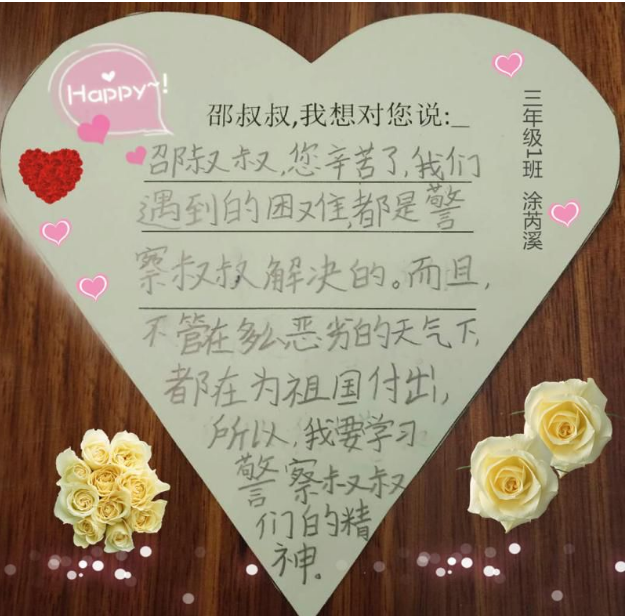 Happy~!
邵叔叔,我想对您说:_
邵叔叔,您辛苦了,我们
遇到的困难,都是警
察叔叔解决的。而且,
不管在多么恶劣的天气下,
都在为祖国付出,
所以,我要学习
警察叔叔
们的精
神。
三年级1班 涂芮溪